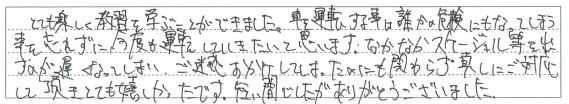 とても楽しく教習を学ぶことができました。車を運転する事は誰かの危険にもなってしまう
事を忘れずに今度も運転していきたいと思います。なかなかスケージュル等をれ
するが遅くなってしまい、ご迷惑おかけしてしまったのにも関わらず真しにご対応
して頂きとても嬉しかったです。短い間でしたがありがとうございました。